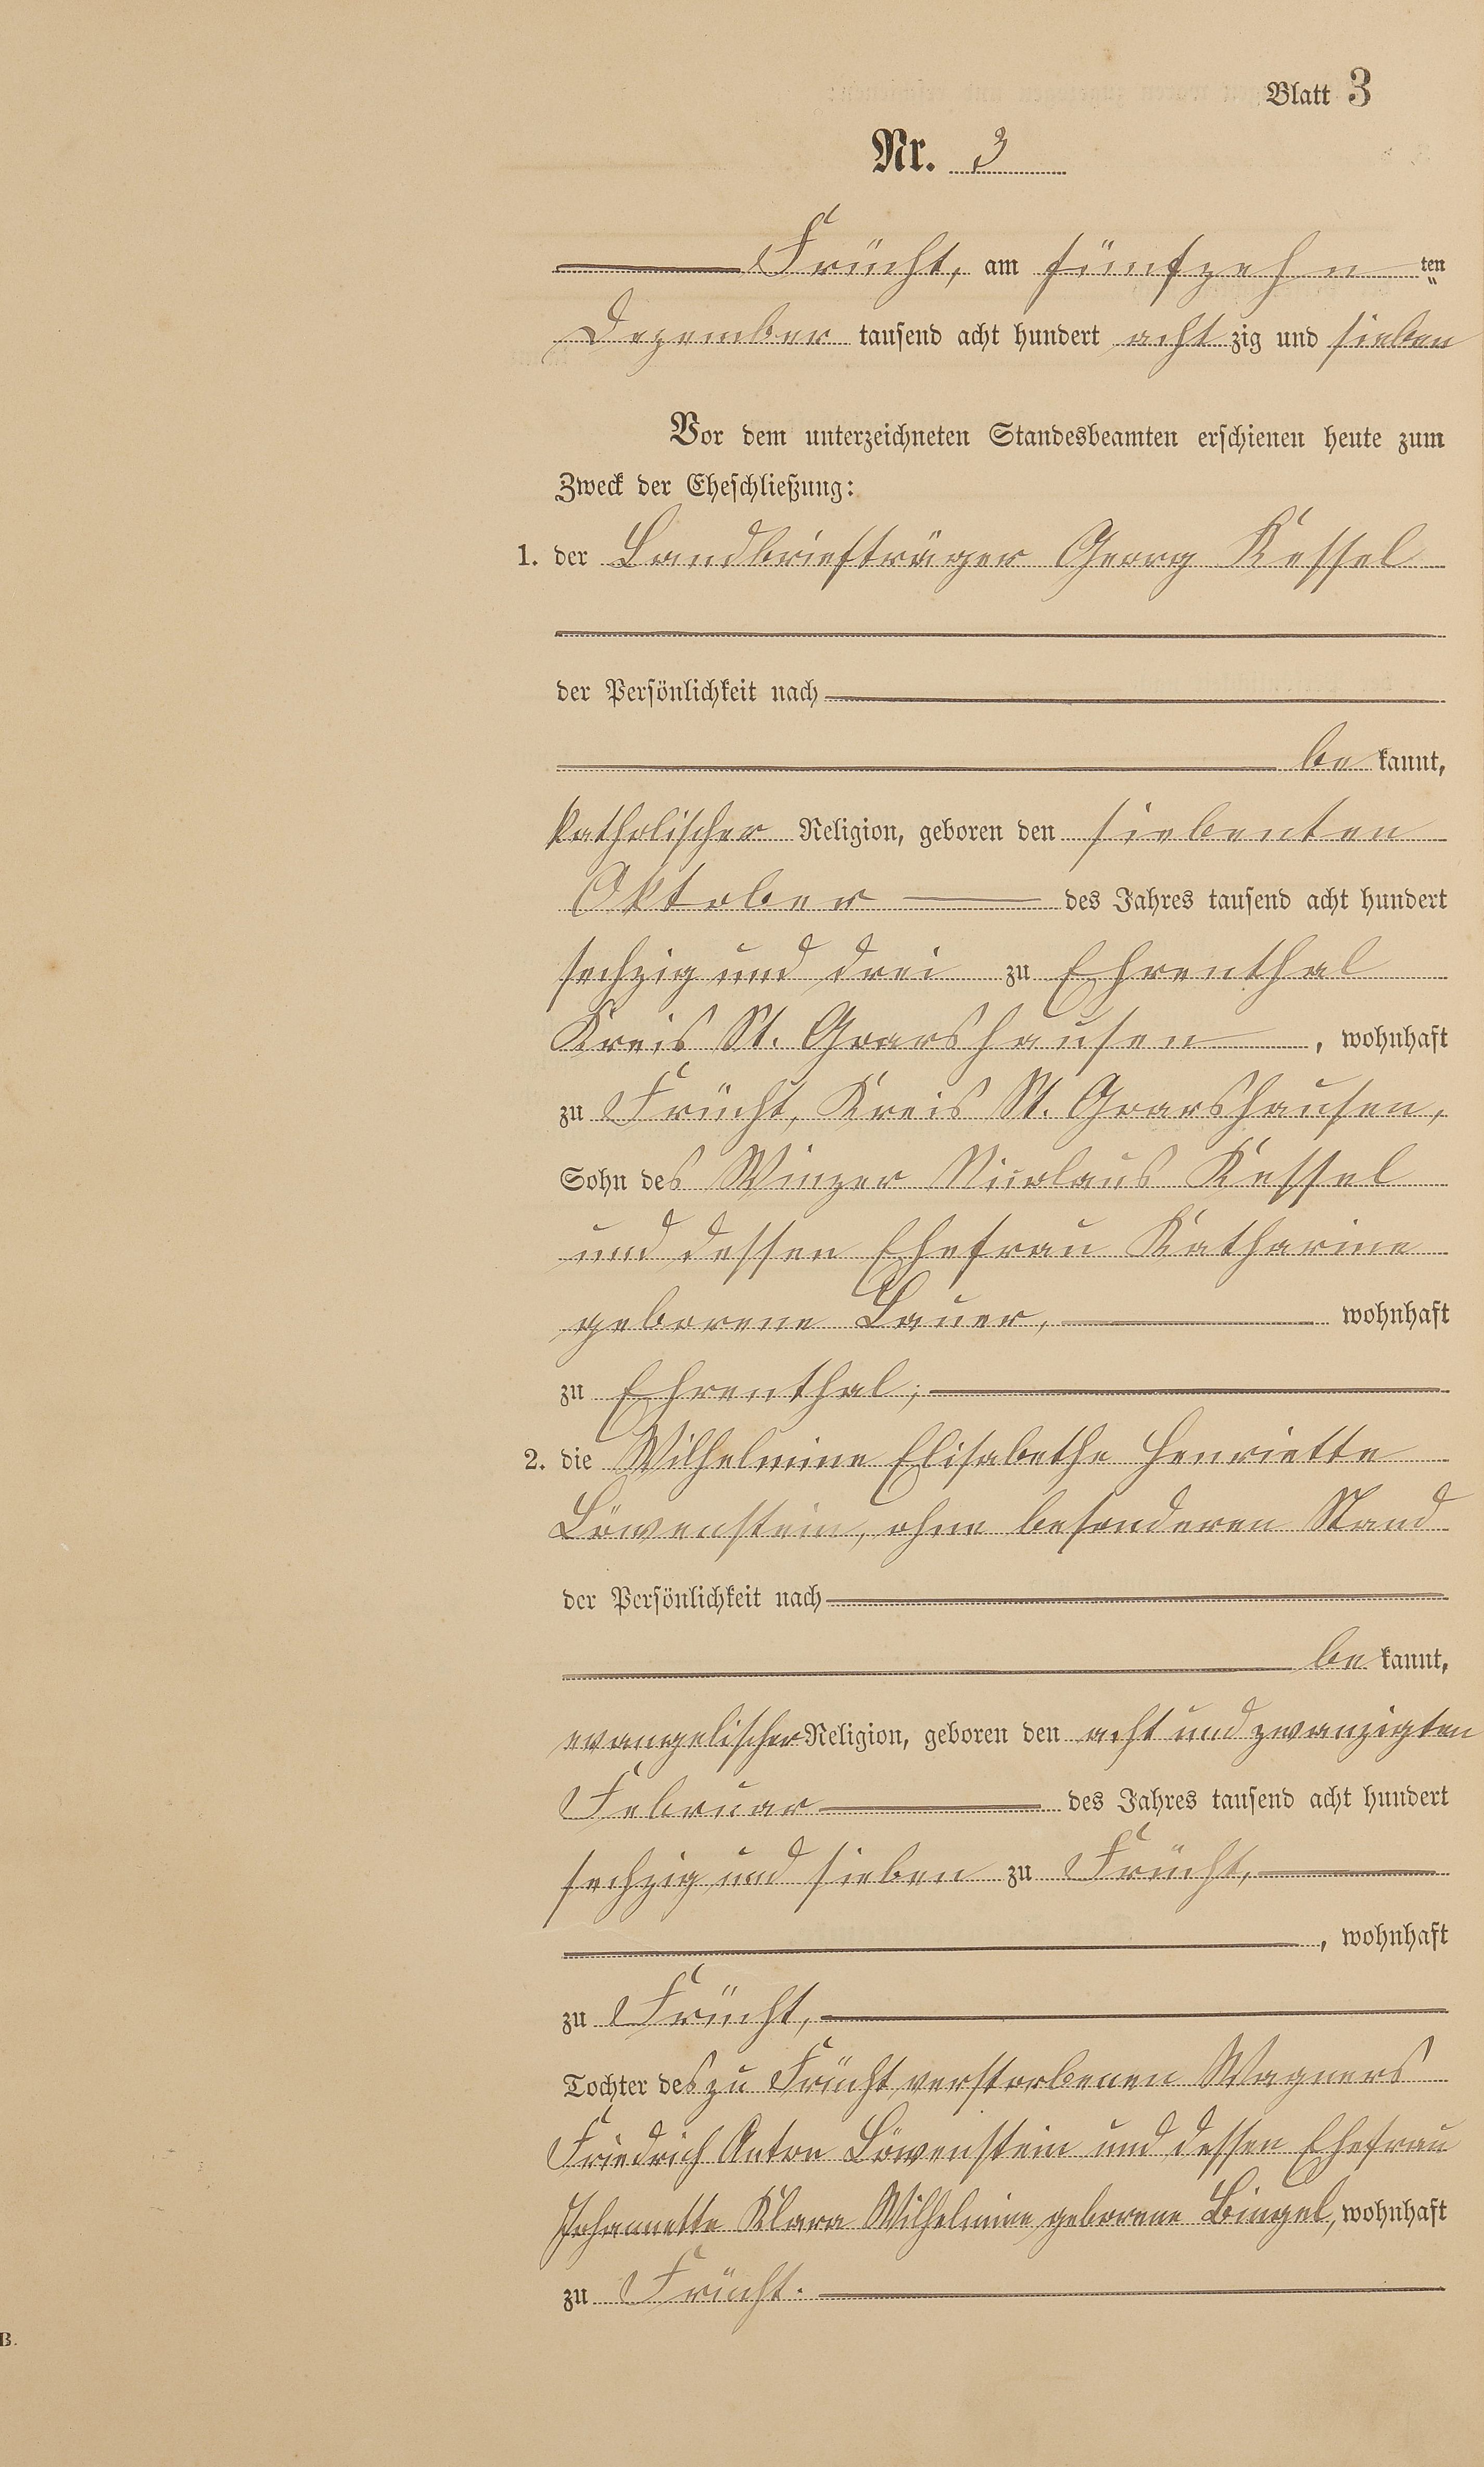 Blatt 3
Nr. 3
Frücht, am fünfzehn ten
Dezember tausend acht hundert acht zig und sieben
Vor dem unterzeichneten Standesbeamten erschienen heute zum
Zweck der Eheschließung:
1. der Landbriefträger Georg Kessel
der Persönlichkeit nach
be kannt,
katholischer Religion, geboren den siebenten
Oktober des Jahres tausend acht hundert
sechzig und drei zu Ehrenthal
Kreis St. Goarshausen, wohnhaft
zu Frücht, Kreis St. Goarshausen,
Sohn des Winzer Nicolaus Kessel
und dessen Ehefrau Katharine
geborene Lauer, wohnhaft
zu Ehrenthal;
2. die Wilhelmine Elisabethe Henriette
Löwenstein, ohne besonderen Stand
der Persönlichkeit nach
be kannt,
evangelischer Religion, geboren den acht und zwanzigten
Februar des Jahres tausend acht hundert
sechzig und sieben zu Frücht,
, wohnhaft
zu Frücht,
Tochter des zu Frücht verstorbenen Wagners
Friedrich Anton Löwenstein und dessen Ehefrau
Johannette Klara Wilhelmine geborene Bingel, wohnhaft
zu Frücht.
B.